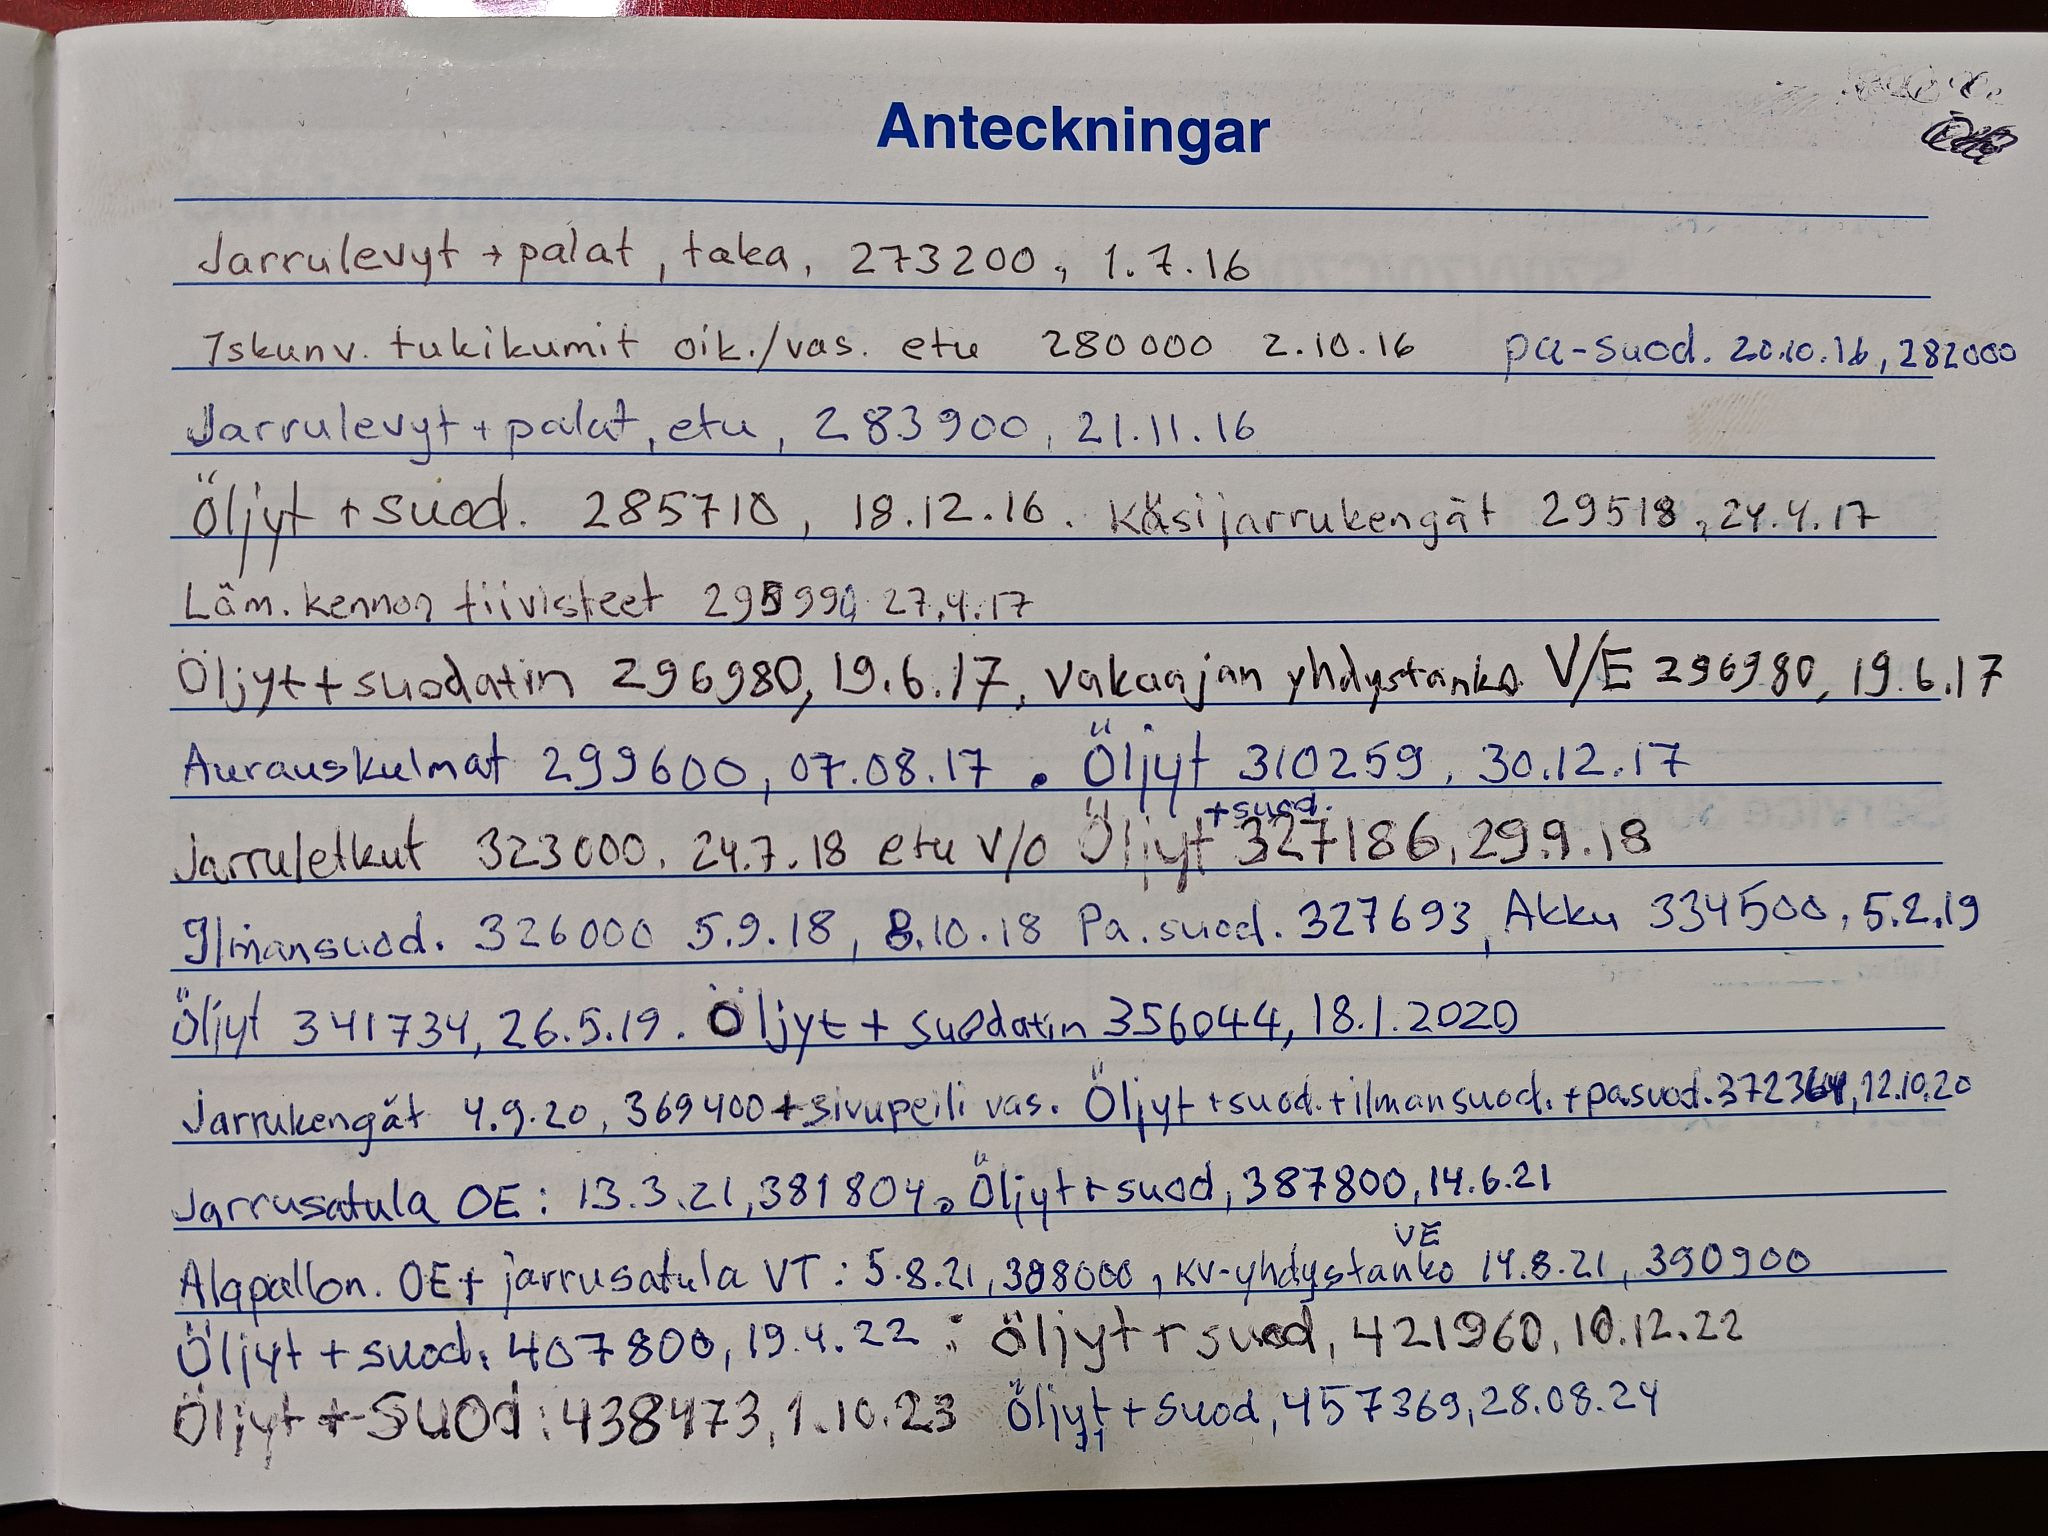 Anteckningar
Jarrulevyt + palat, taka, 273200, 1.7.16
Iskunv. tukikumit oik./vas. etu 280000 2.10.16 pa-suod. 20.10.16, 282000
Jarrulevyt + palat, etu, 283900, 21.11.16
Öljyt + suod. 285710, 18.12.16. Käsijarrukengät 29518, 24.4.17
Läm. kennon tiivisteet 295990 27.4.17
Öljyt + suodatin 296980, 19.6.17, Vakaajan yhdystanko V/E 296980, 19.6.17
Aurauskulmat 299600, 07.08.17. Öljyt 310259, 30.12.17
Jarruletkut 323000, 24.7.18 etu V/O Öljyt +suod. 327186, 29.9.18
Ilmansuod. 326000 5.9.18, 8.10.18 Pa.suod. 327693, Akku 334500, 5.2.19
Öljyt 341734, 26.5.19. Öljyt + suodatin 356044, 18.1.2020
Jarrukengät 4.9.20, 369400 + sivupeili vas. Öljyt + suod. + ilmansuod. + pa.suod. 372364, 12.10.20
Jarrusatula OE: 13.3.21, 381804. Öljyt + suod, 387800, 14.6.21
Alapallon. OE + jarrusatula VT: 5.8.21, 398000, KV-yhdystanko VE 14.8.21, 390900
Öljyt + suod: 407800, 19.4.22 ; Öljyt + suod, 421960, 10.12.22
Öljyt + suod: 438473, 1.10.23 Öljyt + suod, 457369, 28.08.24